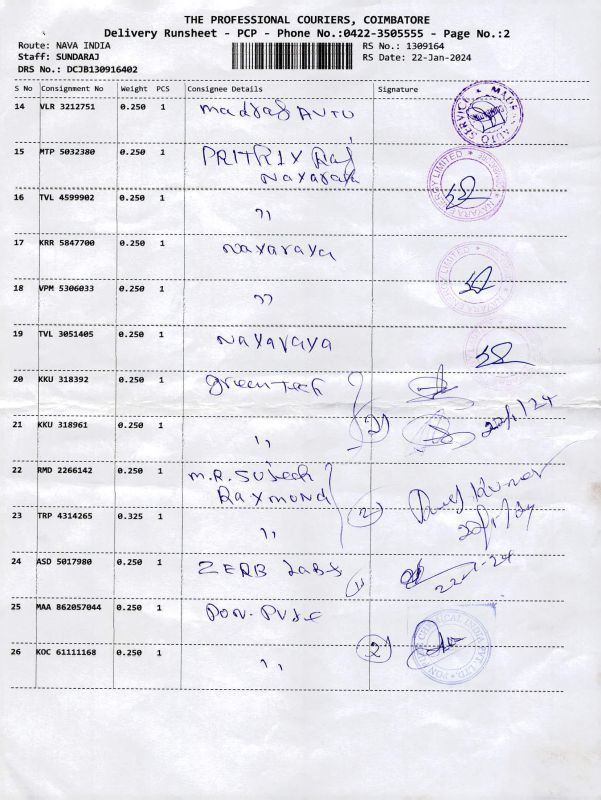 THE PROFESSIONAL COURIERS, COIMBATORE
Delivery Runsheet - PCP - Phone No.:0422-3505555 - Page No.:2
Route: NAVA INDIA RS No.: 1309164
Staff: SUNDARAJ RS Date: 22-Jan-2024
DRS No.: DCJB130916402
S No Consignment No Weight PCS Consignee Details Signature
14 VLR 3212751 0.250 1 Madras AUTO
15 MTP 5032380 0.250 1 Raj
16 TVL 4599902 0.250 1 ''
17 KRR 5847700 0.250 1 Nayaraya
18 VPM 5306033 0.250 1 ''
19 TVL 3051405 0.250 1 Nayaraya
20 KKU 318392 0.250 1 Green Tech
21 KKU 318961 0.250 1 '' 2 22/1/24
22 RMD 2266142 0.250 1 M.R. Sujeeh
Raymond
23 TRP 4314265 0.325 1 '' 2 22/1/24
24 ASD 5017980 0.250 1 ZERB Labs 22-1-24
25 MAA 862057044 0.250 1 PON-PURE
26 KOC 61111168 0.250 1 '' 2